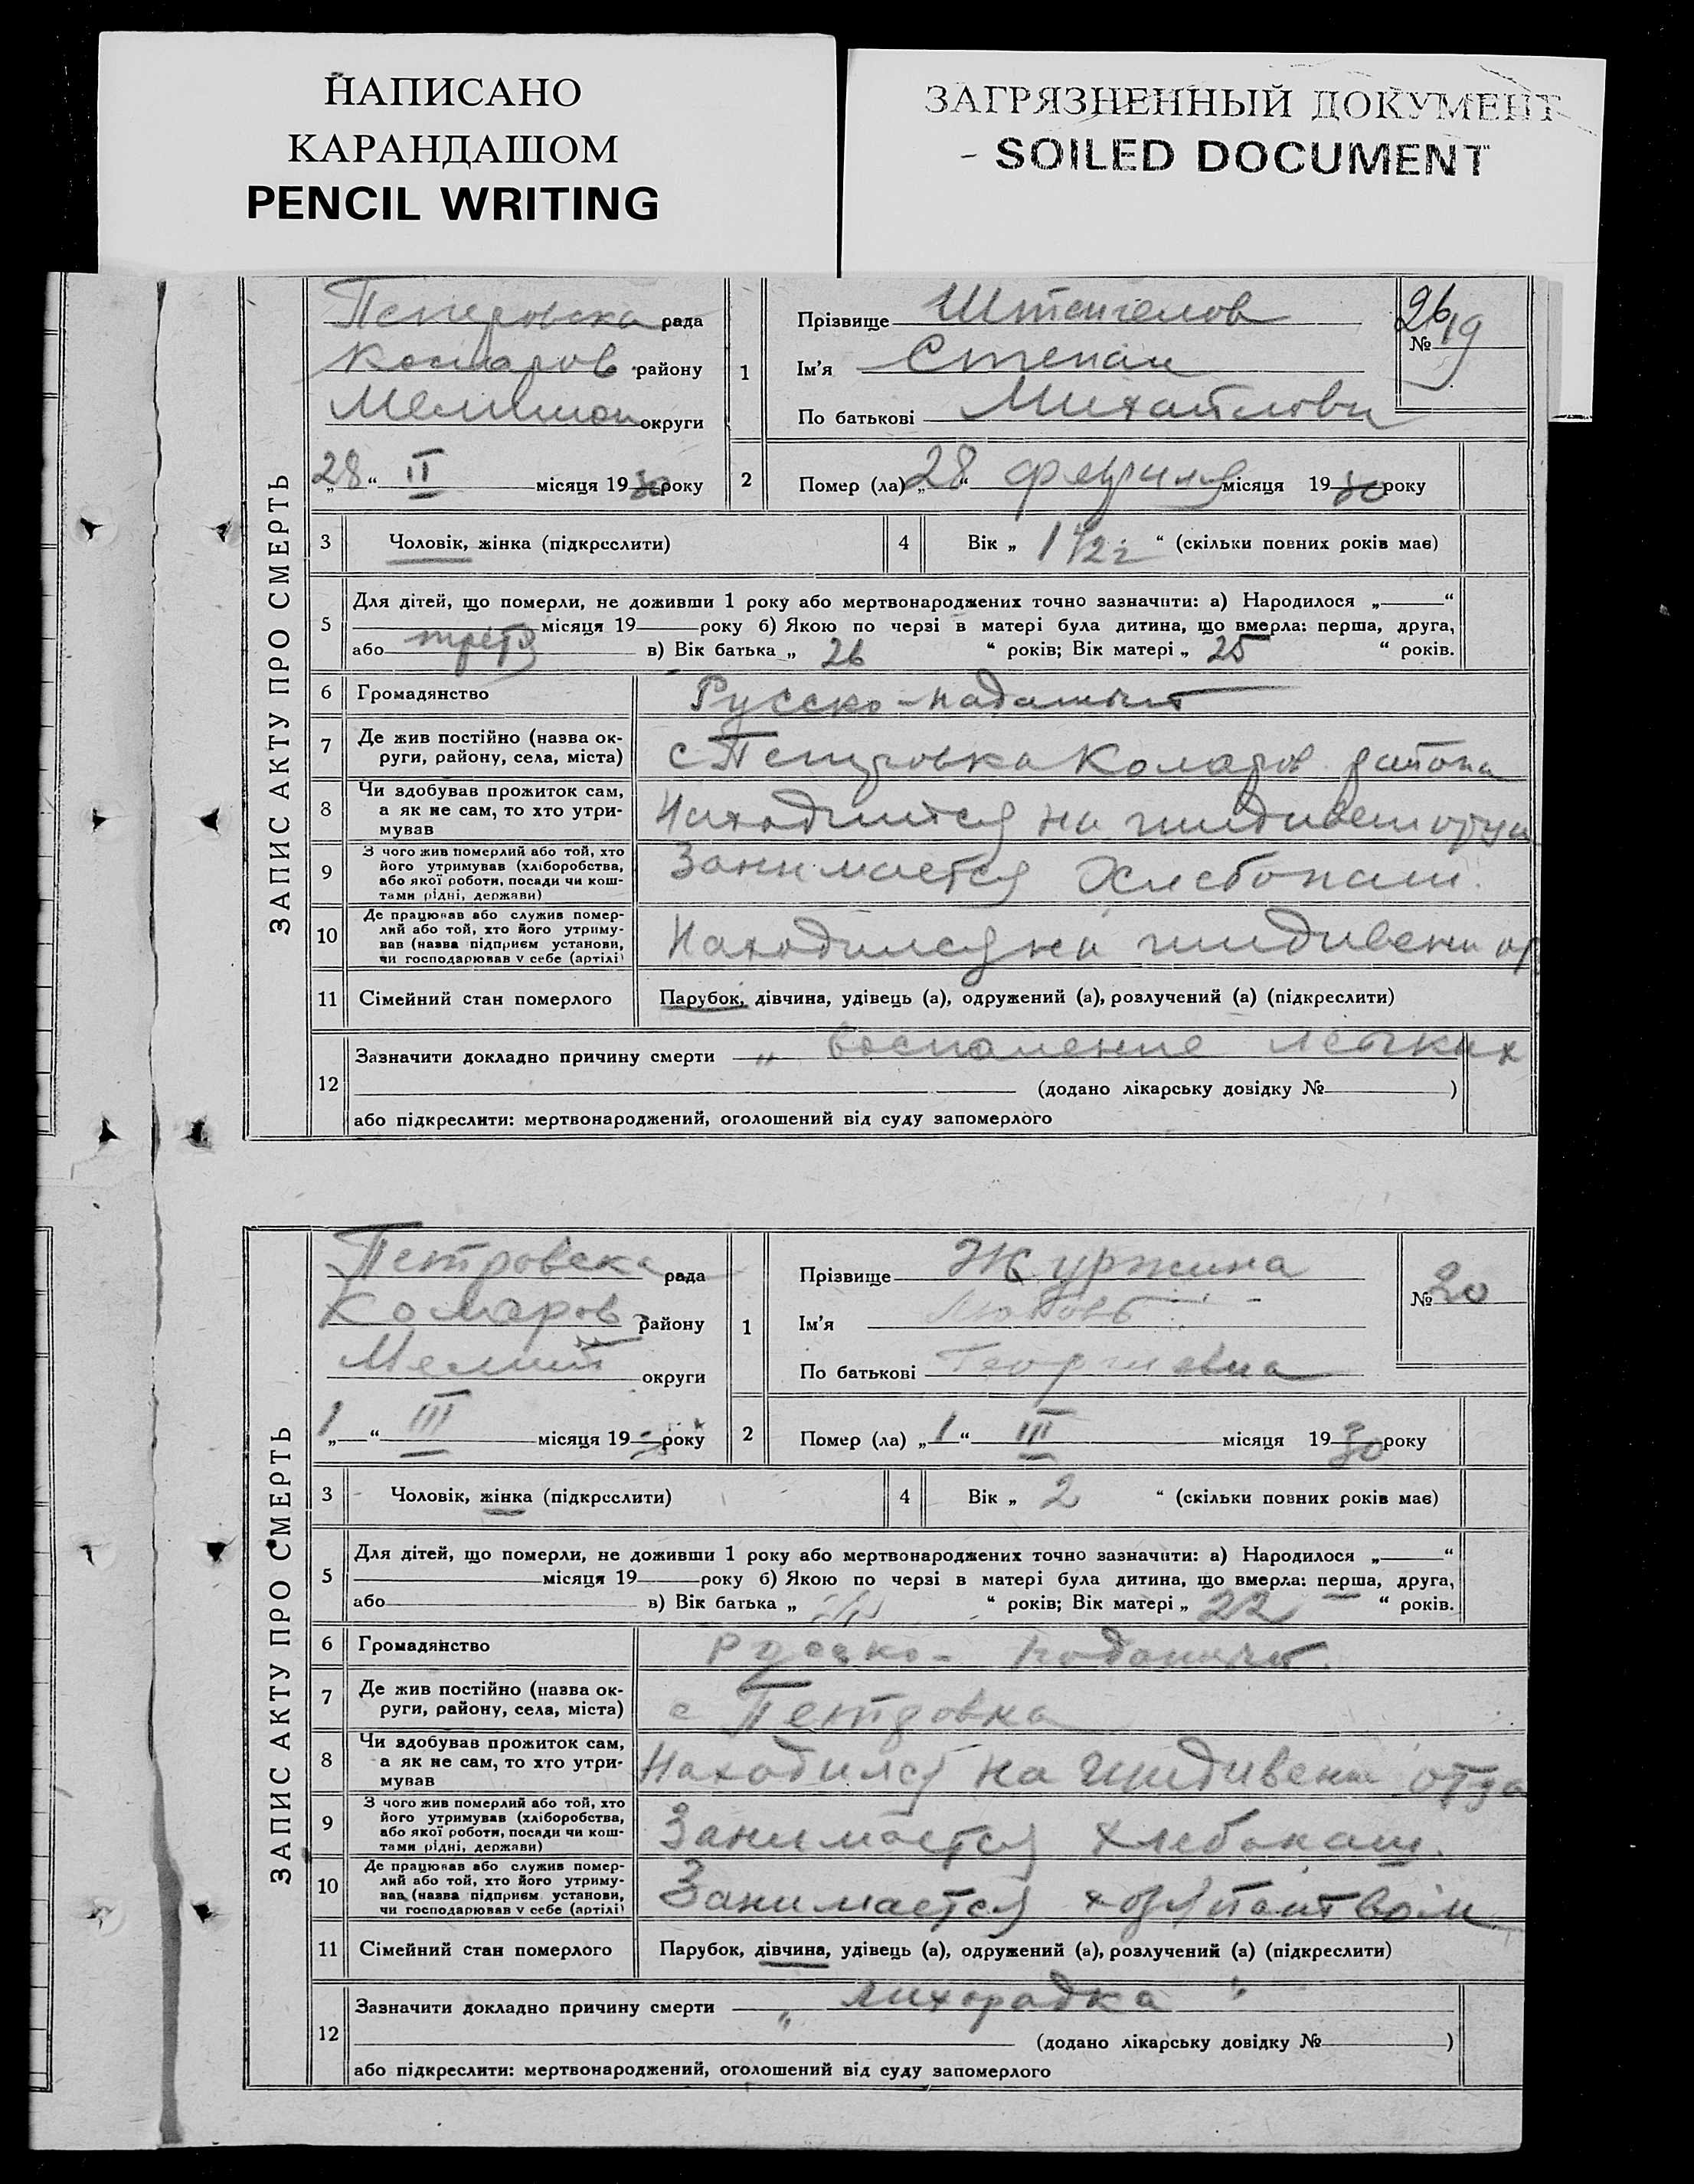 НАПИСАНО
КАРАНДАШОМ
PENCIL WRITING
ЗАГРЯЗНЕННЫЙ ДОКУМЕНТ
- SOILED DOCUMENT
ЗАПИС АКТУ ПРО СМЕРТЬ
Петровска рада
Коларов району
Мелитоп округи
„28“ II місяця 1930 року
1
Прізвище
Ім'я Степан
По батькові Михайлови
№ 19
26
2 Помер (ла) „28“ февраля місяця 1930 року
3 Чоловік, жінка (підкреслити)
4 Вік „1 1/2 г“ (скільки повних років має)
5 Для дітей, що померли, не доживши 1 року або мертвонароджених точно зазначити: а) Народилося „ “
місяця 19 року б) Якою по черзі в матері була дитина, що вмерла: перша, друга,
або третя в) Вік батька „ 26 “ років; Вік матері „ 25 “ років.
6 Громадянство Русско-
7 Де жив постійно (назва ок-
руги, району, села, міста) с Петровка Коларов района
8 Чи здобував прожиток сам,
а як не сам, то хто утри-
мував Находится на отца
9 З чого жив померлий або той, хто
його утримував (хліборобства,
або якої роботи, посади чи кош-
тами рідні, держави) Занимается Хлебопаш.
10 Де працював або служив помер-
лий або той, хто його утриму-
вав (назва підприєм установи,
чи господарював у себе (артілі) Находился на
11 Сімейний стан померлого Парубок, дівчина, удівець (а), одружений (а), розлучений (а) (підкреслити)
12 Зазначити докладно причину смерти „ воспаление легких
(додано лікарську довідку № )
або підкреслити: мертвонароджений, оголошений від суду запомерлого
ЗАПИС АКТУ ПРО СМЕРТЬ
Петровска рада
Коларов району
Мелит округи
„1“ III місяця 19 року
1
Прізвище Журжина
Ім'я Любовь
По батькові Георгиевна
№ 20
2 Помер (ла) „1“ III місяця 1930 року
3 Чоловік, жінка (підкреслити)
4 Вік „ 2 “ (скільки повних років має)
5 Для дітей, що померли, не доживши 1 року або мертвонароджених точно зазначити: а) Народилося „ “
місяця 19 року б) Якою по черзі в матері була дитина, що вмерла: перша, друга,
або в) Вік батька „ “ років; Вік матері „ 22 “ років.
6 Громадянство Русско-
7 Де жив постійно (назва ок-
руги, району, села, міста) с Петровка
8 Чи здобував прожиток сам,
а як не сам, то хто утри-
мував Находился на отца
9 З чого жив померлий або той, хто
його утримував (хліборобства,
або якої роботи, посади чи кош-
тами рідні, держави) Занимается хлебопаш.
10 Де працював або служив помер-
лий або той, хто його утриму-
вав (назва підприєм установи,
чи господарював у себе (артілі) Занимается
11 Сімейний стан померлого Парубок, дівчина, удівець (а), одружений (а), розлучений (а) (підкреслити)
12 Зазначити докладно причину смерти „ лихорадка “
(додано лікарську довідку № )
або підкреслити: мертвонароджений, оголошений від суду запомерлого